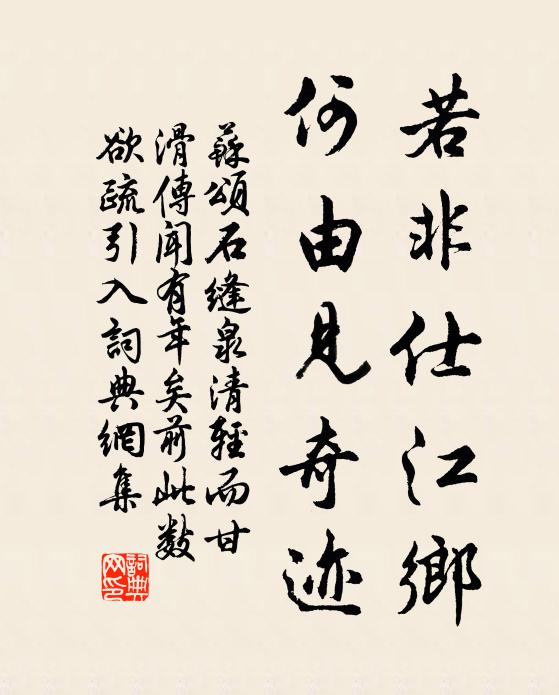 若非仕江鄉
何由見奇迹
蘇頌石縫泉清輕而甘
滑傳聞有年矣前此數
欲疏引入詞典網集
詞典網印